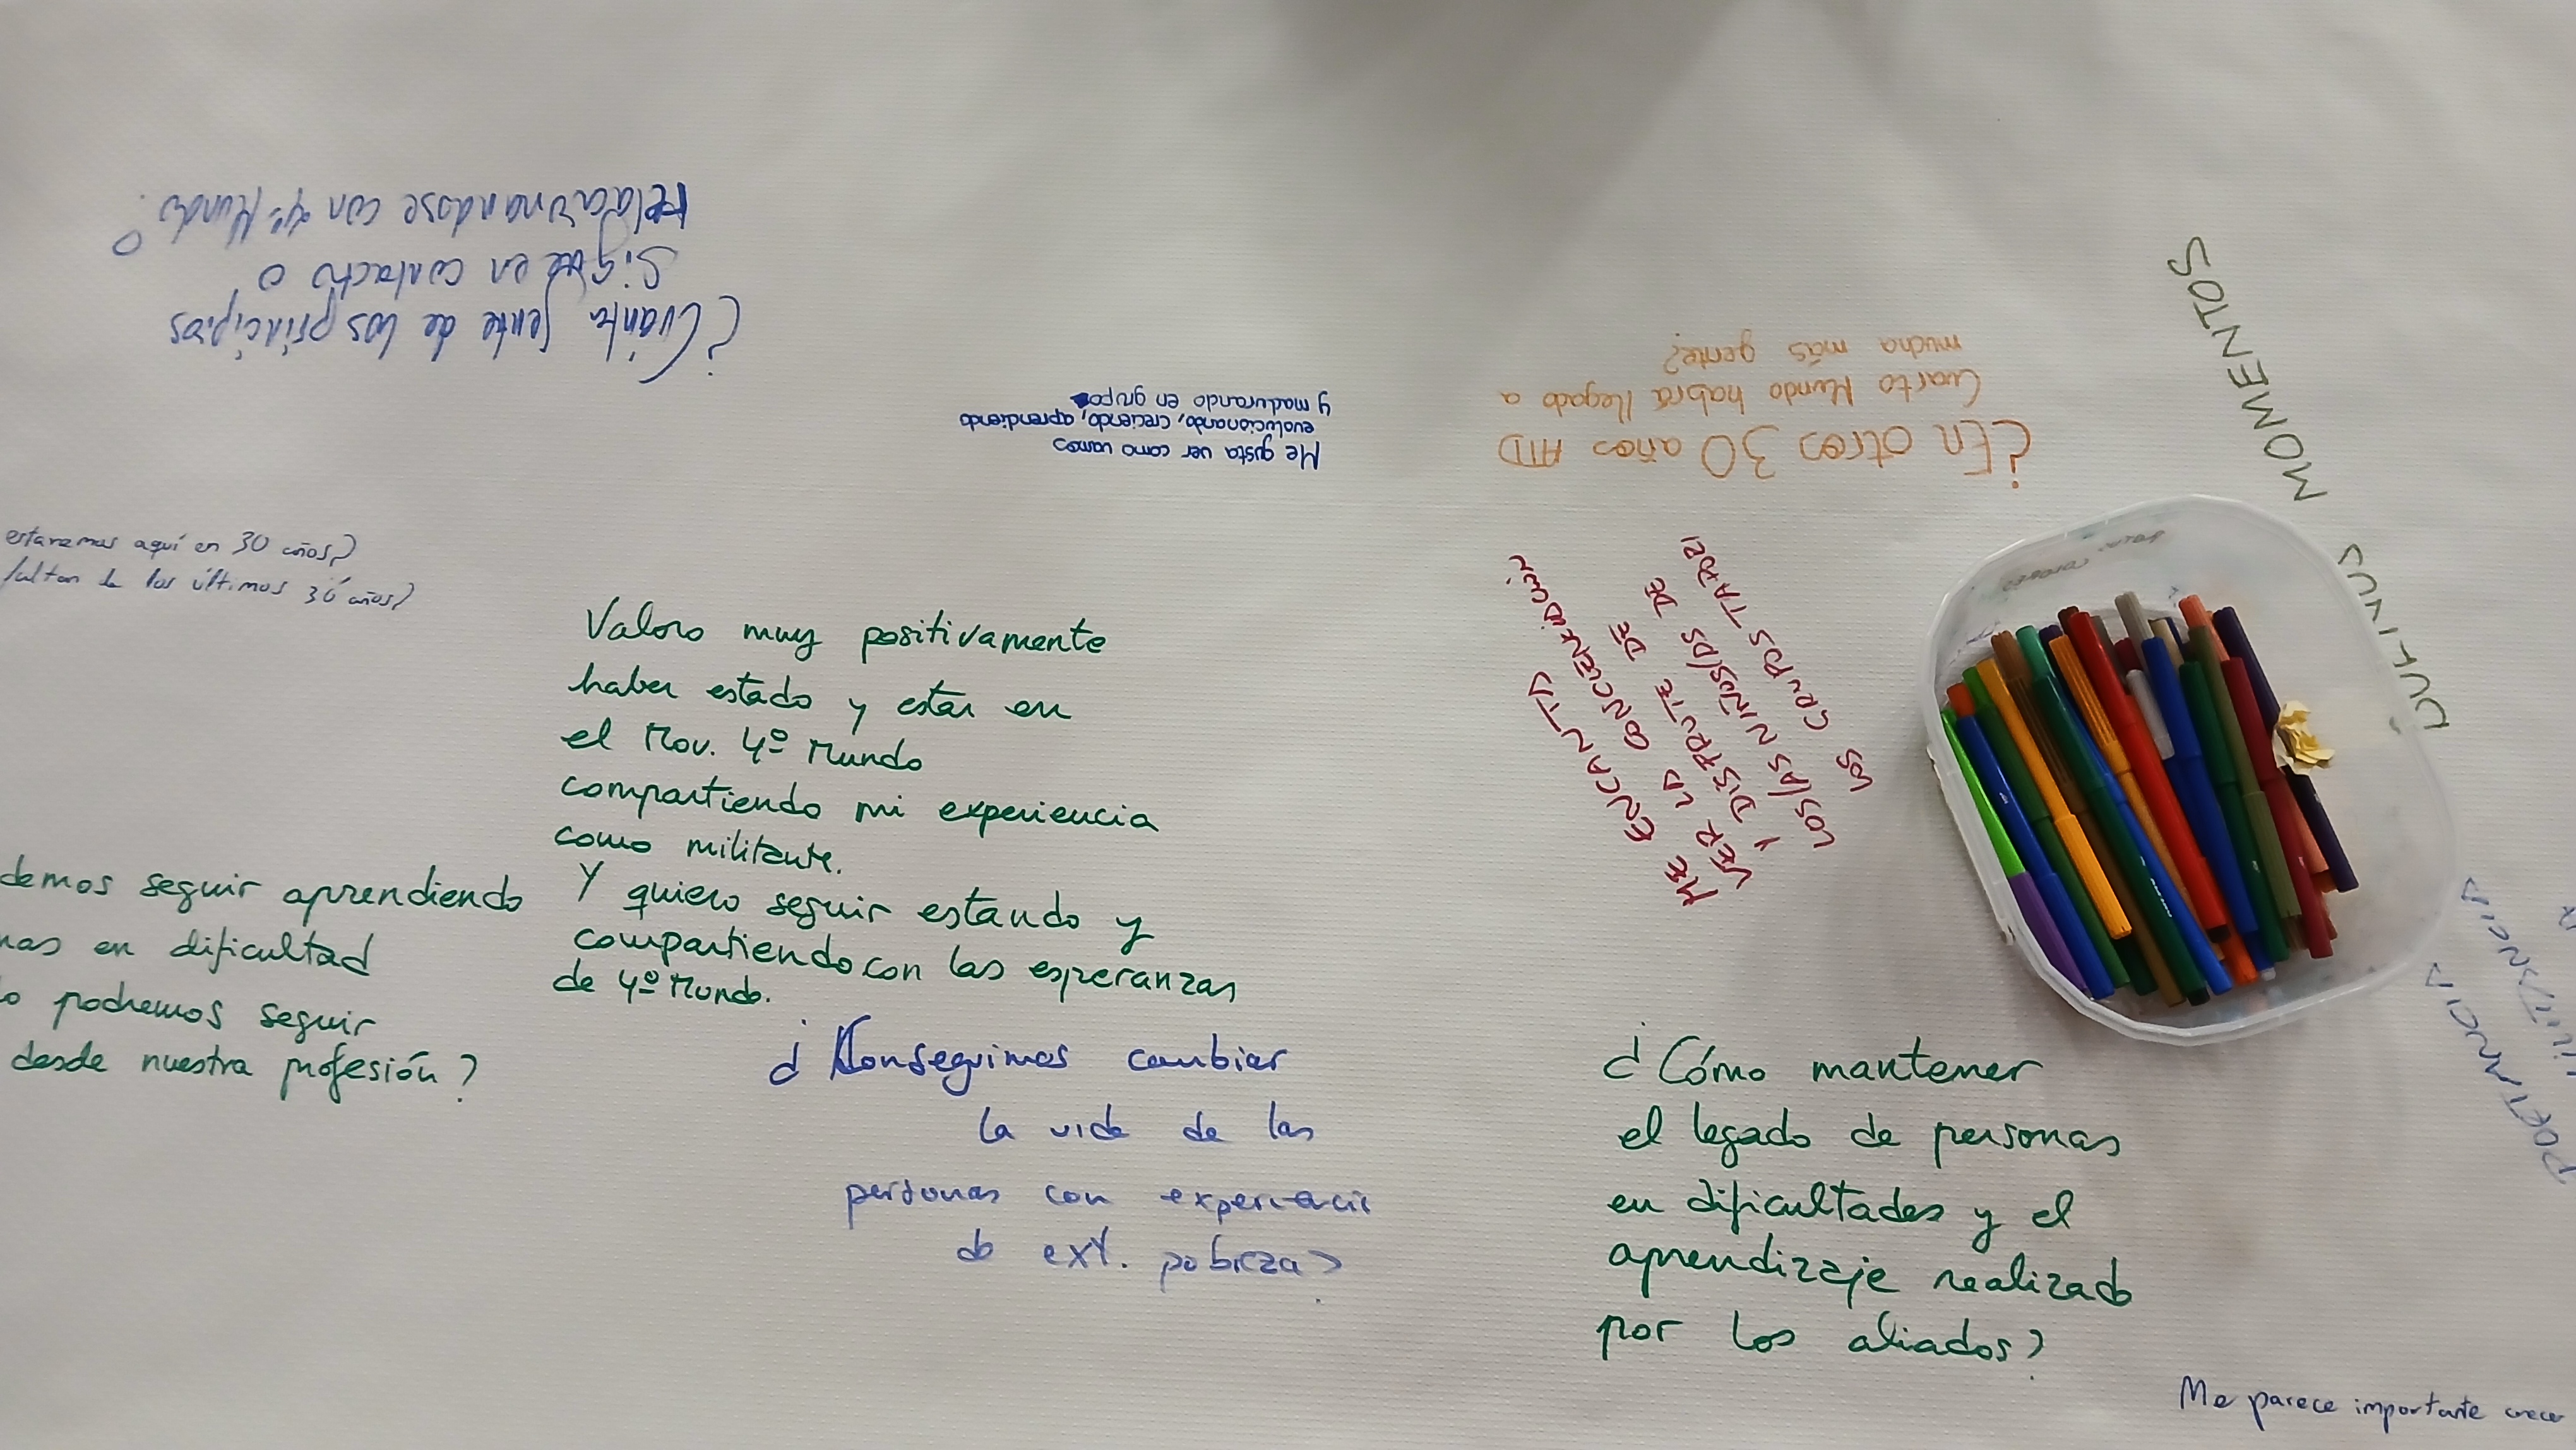 ¿Cuánta gente de los principios
sigue en contacto o
relacionandose con 4º Mundo?
Me gusta ver como vamos
evolucionando, creciendo, aprendiendo
y madurando en grupo
¿En otros 30 años ATD
Cuarto Mundo habrá llegado a
mucha más gente?
MOMENTOS
estaremos aquí en 30 años?
faltan de los últimos 30 años?
Valoro muy positivamente
haber estado y estar en
el Mov. 4º Mundo
compartiendo mi experiencia
como militante.
Y quiero seguir estando y
compartiendo con las esperanzas
de 4º Mundo.
ME ENCANTA
VER LA CONCIENCIACIÓN
Y DISFRUTE DE
LOS/AS NIÑOS/AS DE
LOS GRUPOS TAPORI
demos seguir aprendiendo
nas en dificultad
o podremos seguir
desde nuestra profesión?
¿Conseguimos cambiar
la vida de las
personas con experiencia
de ext. pobreza?
¿Cómo mantener
el legado de personas
en dificultades y el
aprendizaje realizado
por los aliados?
Me parece importante crecer